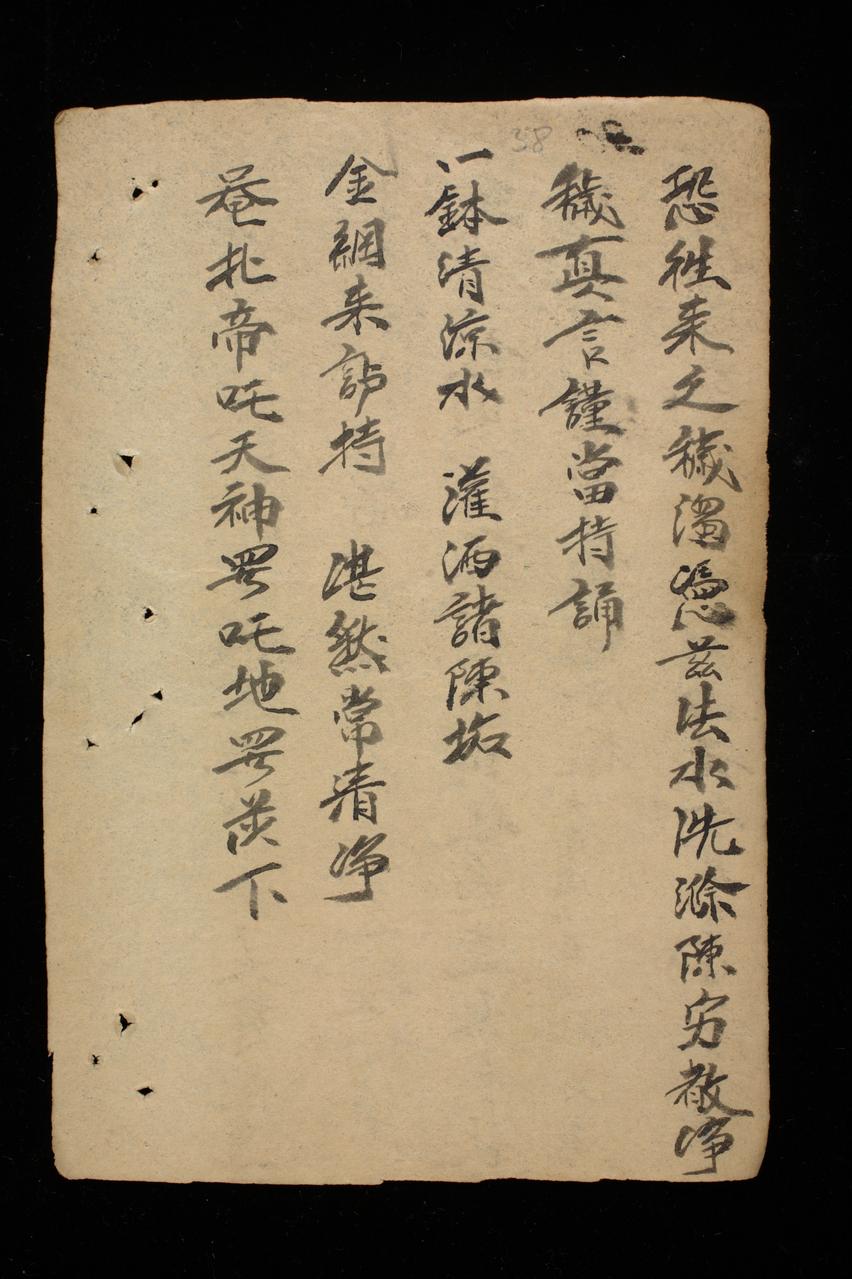 恐徃来之穢濁憑兹法水洗滌陳穷教净
穢真言謹當持誦
一鉢清凉水 灌洒諸陳垢
金綱来持 湛然常清净
菴扎帝吒天神呪吒地呪下
38